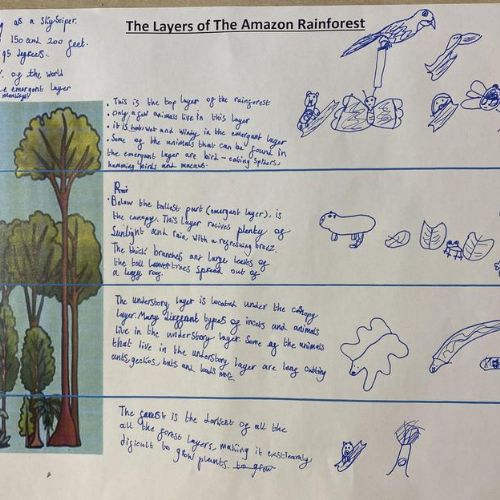 The Layers of The Amazon Rainforest
as a skyscriper.
150 and 200 feet.
95 degrees.
of the world
emergent layer
• This is the top layer of the rainforest
• Only a few animals live in this layer
• it is hot, wet and windy in the emergent layer
• Some of the animals that can be found in
the emergant layer are bird-eating spiders,
humming birds and macaws.
• Below the tallest part (emergant layer), is
the canopy. This layer recives plenty of
Sunlight and rain, with a
The thick branches and large leaves of
the tall trees spread out of
a
The understory layer is located under the canopy
layer. Many diggerent types of and animals
live in the understory layer. Some of the animals
that live in the understory layer are leaf cutting
ants, geckos, bats and
The is the darkest of all the
all the forest layers, making it
dificult to grow plants. to grow